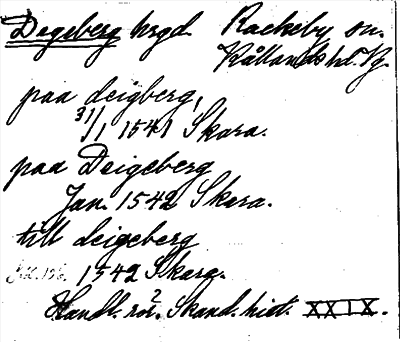 Degeberg hrgd. Rackeby sn.
Kållands hd. Sg.
paa deigberg,
31/1 1541 Skara.
paa Deigeberg
Jan. 1542 Skara.
till deigeberg
1542 Skara.
Handl. rör. Skand. hist. XXIX.